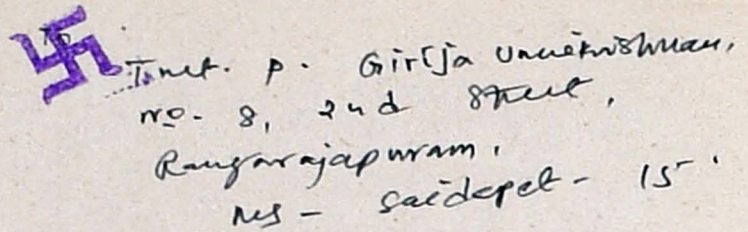 Tmt. P. Girija Unnikrishnan,
No. 8, 2nd Street,
Rangarajapuram,
Ms - Saidapet - 15